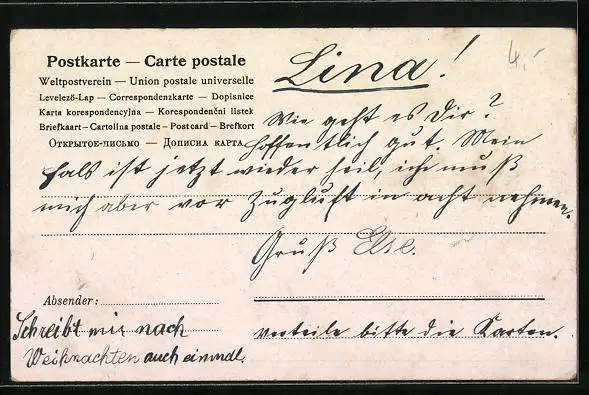 Postkarte — Carte postale
Weltpostverein — Union postale universelle
Levelező-Lap — Correspondenzkarte — Dopisnice
Karta korespondencyjna — Korespondenční listek
Briefkaart — Cartolina postale — Postcard — Brefkort
Открытое-письмо — Дописна карта
4.-
Lina!
Wie geht es Dir?
Hoffentlich gut. Mein
Hals ist jetzt wieder heil, ich muß
mich aber vor Zugluft in acht nehmen.
Gruß Else.
Absender:
Schreibt mir nach
Weihnachten auch einmal.
verteile bitte die Karten.